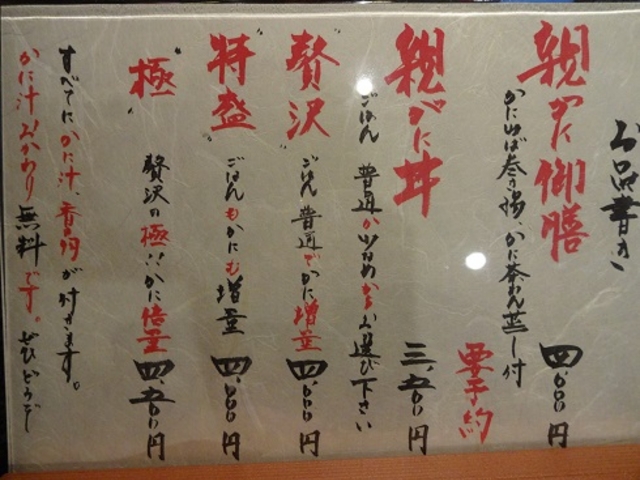 お品書き
親がに御膳 四、〇〇〇円
かに湯ば巻き揚、かに茶わん蒸し付
要予約
親がに丼 三、五〇〇円
ごはん 普通か少なめからお選び下さい
"贅沢" ごはん普通でかに増量 四、〇〇〇円
"特盛" ごはんもかにも増量 四、〇〇〇円
"極" 贅沢の極!!かに倍量 四、五〇〇円
すべてにかに汁、香物が付きます。
かに汁おかわり無料です。ぜひどうぞ